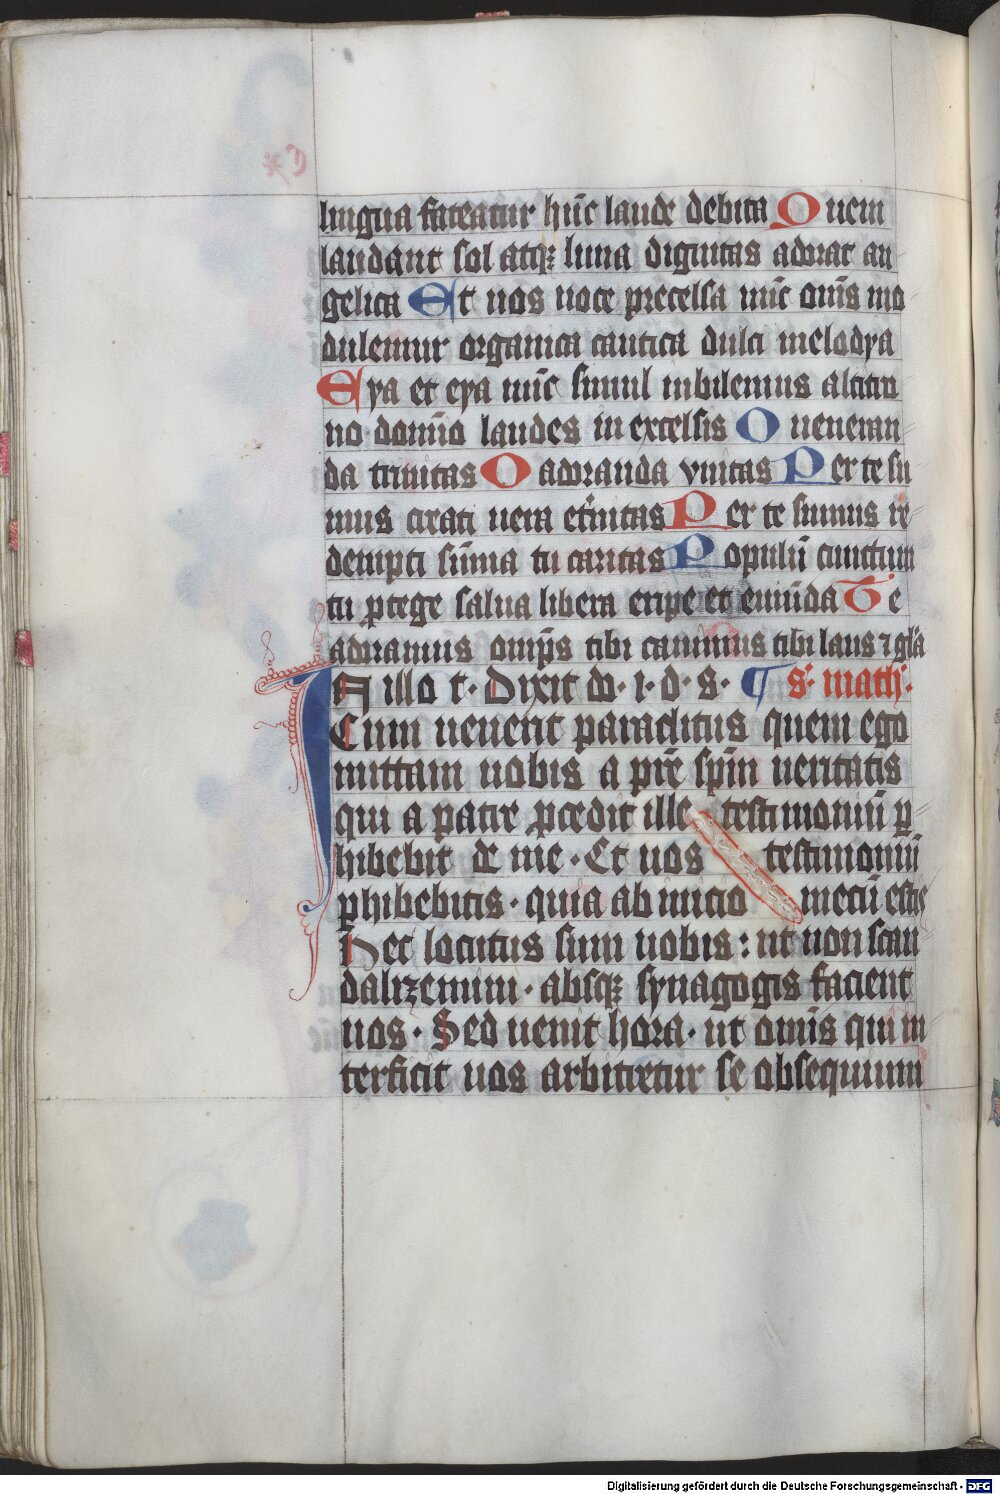 lingua fateatur hūc laude debita Quem
laudant sol atqꝫ luna dignitas adorat an
gelica Et nos uoce precelsa nūc om̄s mo
dulemur organica cantica dulci melodya
Eya et eya nūc simul iubilemus altitro
no domīo laudes in excelsis O ueneran
da trinitas O adoranda vnitas Per te su
mus creati uera et̄nitas Per te sumus re
dempti sūma tu caritas Populū cunctum
tu ꝓtege salua libera eripe et emūda Te
adoramus omp̄s tibi canimus tibi laus ⁊ gl̄a
In illo t· Dixit ih̄· i· d· s· ¶ s· math·
Cum uenerit paraclitus quem ego
mittam uobis a pr̄e spm̄ ueritatis
qui a patre ꝓcedit ille testimoniū ꝑ
hibebit de me · Et uos testimoniū
ꝑhibebitis · quia ab inicio mecū estis
Hec locutus sum uobis : ut non scan
dalizemini · absqꝫ synagogis facient
uos · Sed uenit hora · ut om̄is qui in
terficit uos arbitretur se obsequium
Digitalisierung gefördert durch die Deutsche Forschungsgemeinschaft - DFG